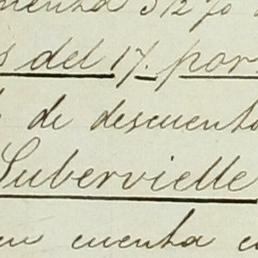 cuenta 3127o
s del 17. por
de descuento
Subervielle
en cuenta co